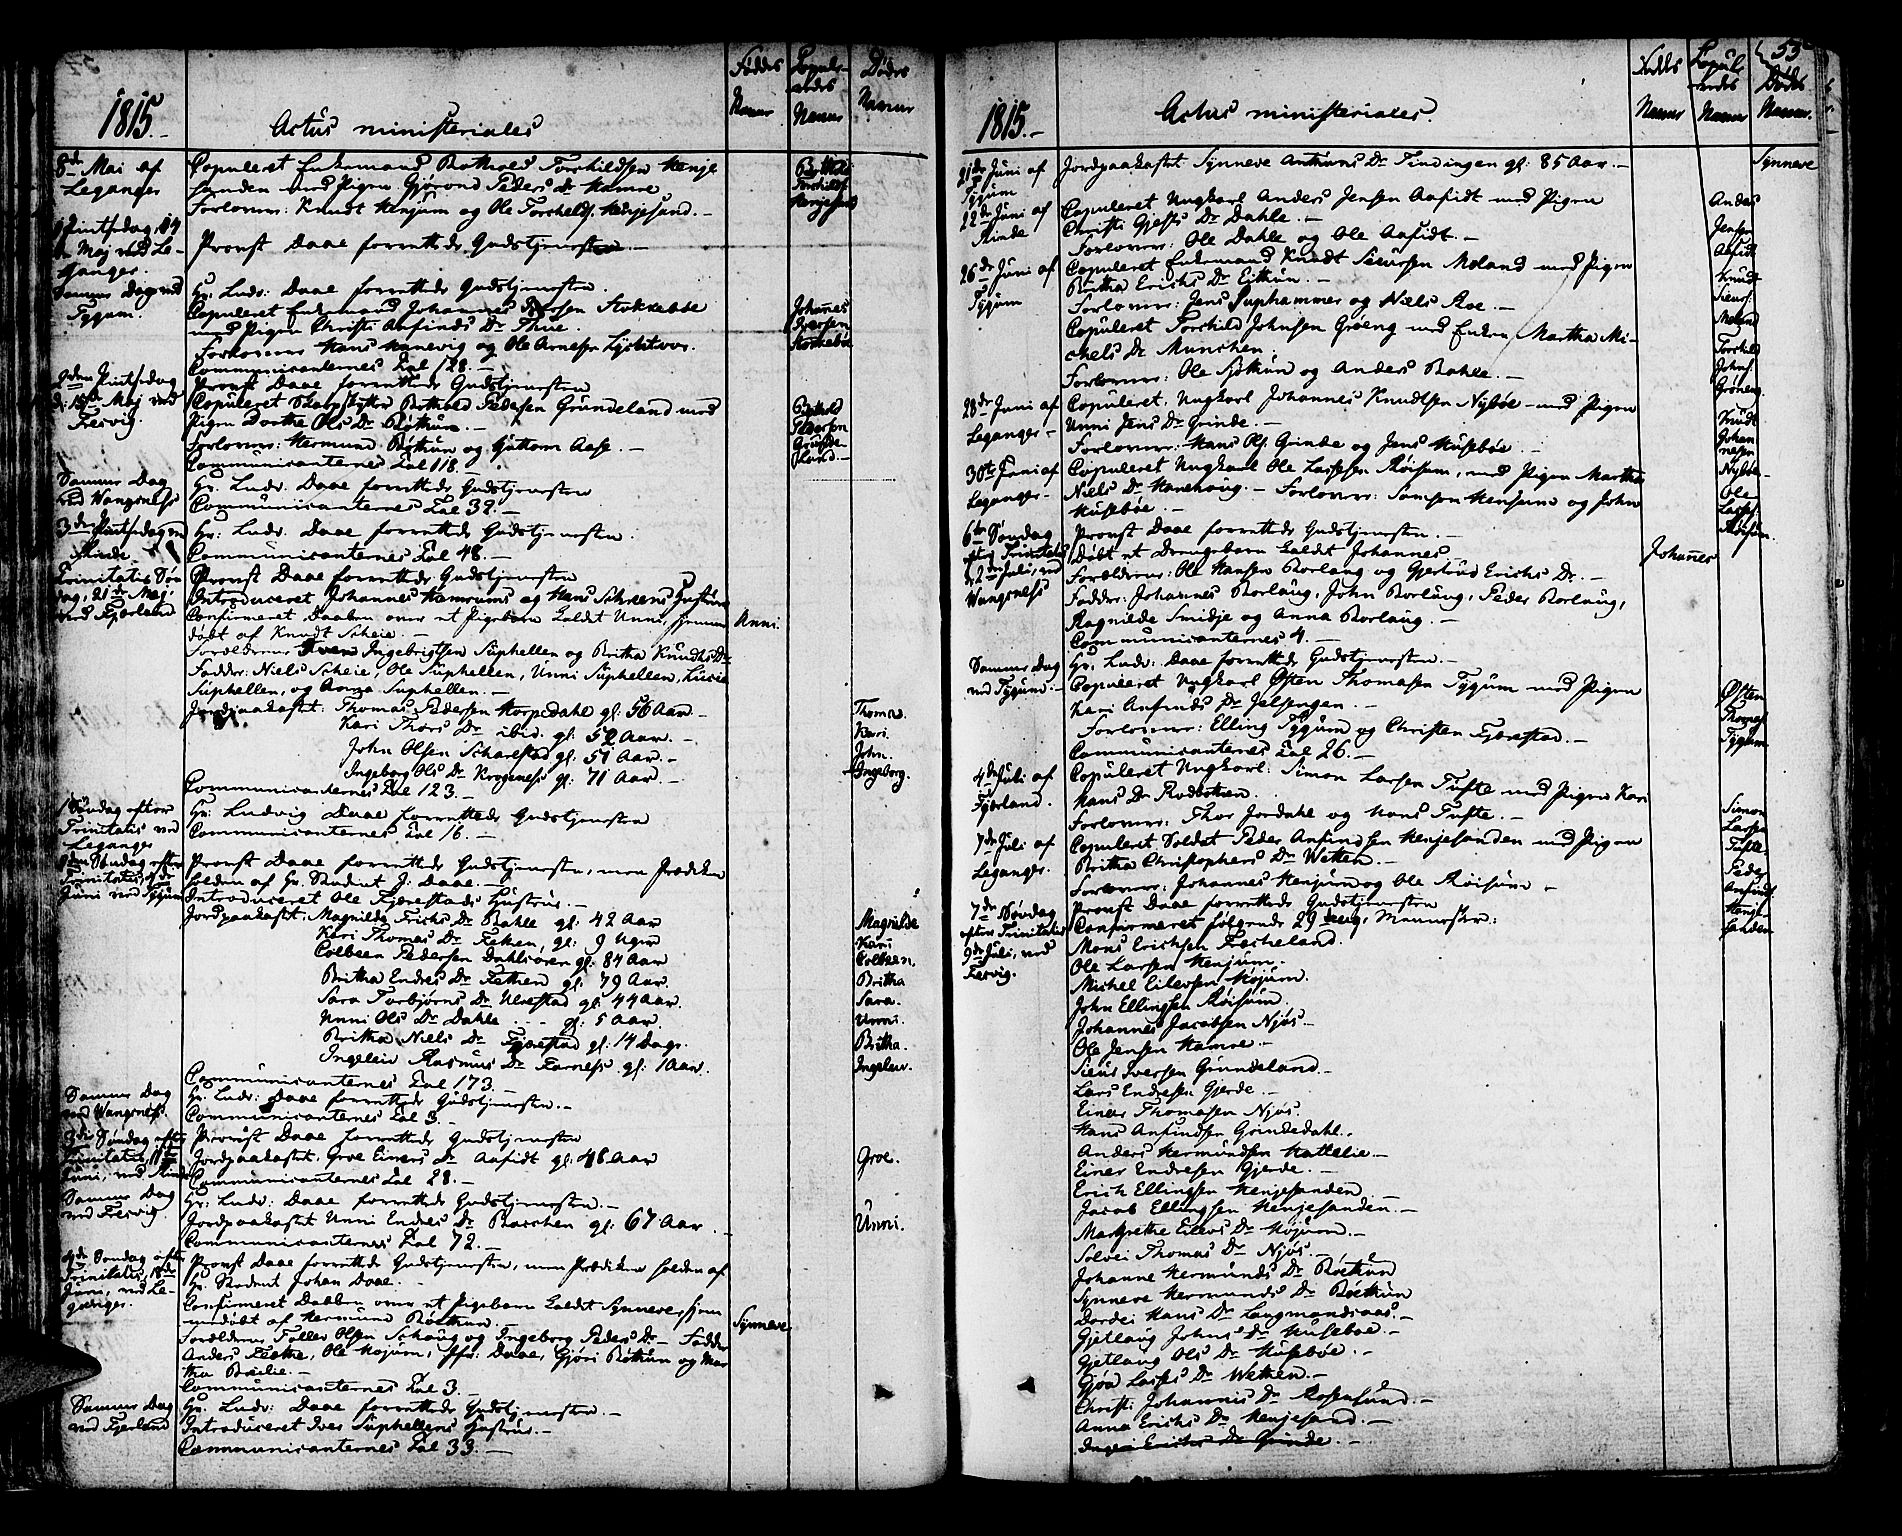 1815.
Actus ministeriales
Føddes Navne
Copulerendes Navne
Dødes Navne
8de Mai af Leganger
Copuleret Enkemand Botholf Torchildsen Henje
sanden med Pigen Gjørond Peders Dr Hamre
Forlovere: Knudt Henjum og Ole Torchelds. Henjesand. –
Bothold Torchilds. Henjesand
1 Pintsedag, 14 Maj ved Leganger.
Provst Daae forrettede Gudstjenesten –
Samme Dag ved Tygum
Hr. Ludv: Daae forrettede Gudstjenesten.
Copuleret Enkemand Johannes Iversen Stokkebøe
med Pigen Christi Anfinds Dr Thue.
Forlovere Hans Hanevig og Ole Arnesen
Communicanternes Tal 128. –
Johannes Iversen Stokkebøe
2den Pintsedag d: 15de Maj ved Fresvig.
Provst Daae forrettede Gudstjenesten
Copuleret Skarpskytter Bothold Pedersen Grundeland med
Pigen Dorthe Ols Dr Røthun. –
Forlovere: Hermund Røthun og Guttorm Aase. –
Communicanternes Tal 118. –
Bothold Pedersen Grundeland. –
Samme Dag ved Wangsness
Hr. Ludv: Daae forrettede Gudstjenesten
Communicanternes Tal 32. –
3die Pintsedag ved Rinde.
Hr. Ludv. Daae forrettede Gudstjenesten.
Communicanternes Tal 48. –
Trinitatis Søndag, 21de Maj, ved Fjærland
Provst Daae forrettede Gudstjenesten
Introduceret Johannes Hamrums og Hans Hustruer
Confirmeret Daaben over et Pigebarn kaldet Unni, hjemme
døbt af Knudt Scheie. –
Unni.
Forældrene Iver Ingebrigtsen Suphellen og Britha Knudts Dr
Fadder: Niels Scheie, Ole Suphellen, Unni Suphellen, Lucie
Suphellen, og Anna Suphellen. –
Jordpaakastet: Thomas Pedersen Horpedahl gl. 56 Aar. –
Thomas.
Kari Thors Dr ibid. gl: 52 Aar. –
Kari.
John Olsen Scharestad gl: 51 Aar. –
John.
Ingeborg Ols Dr Krogeness gl: 71 Aar. –
Ingeborg.
Communicanternes Tal 123. –
1 Søndag efter Trinitatis ved Leganger
Hr: Ludvig Daae forrettede Gudstjenesten
Communicanternes Tal 16. –
2den Søndag efter Trinitatis, 4de Juni ved Tygum
Provst Daae forrettede Gudstjenesten, men Prædiken
holden af Hr. Student J: Daae. –
Introduceret Ole Fjærestads Hustrue. –
Jordpaakastet: Magnilde Erichs Dr Bahle gl: 42 Aar
Magnilde
Kari Thomas Dr Feken, gl: 9 Uger
Kari
Colbeen Pedersen Dahlsøren gl: 84 Aar
Colbeen.
Britha Endres Dr Fetthen gl: 79 Aar.
Britha
Sara Torbjørns Dr Ulvestad gl: 44 Aar.
Sara.
Unni Ols Dr Dahle gl: 5 Aar.
Unni.
Britha Niels Dr Fjærestad gl: 14 Dage.
Britha.
Ingeleiv Rasmus Dr Farness gl: 1 Aar.
Ingeleiv.
Communicanternes Tal 173. –
Samme Dag ved Wangsness.
Hr. Ludv: Daae forrettede Gudstjenesten. –
Communicanternes Tal 3. –
3die Søndag efter Trinitatis, 11te Juni, ved Rinde
Provst Daae forrettede Gudstjenesten
Jordpaakastet: Groe Einers Dr Aafidt gl: 48 Aar
Groe.
Communicanternes Tal 28. –
Samme Dag ved Fresvig.
Hr. Ludv: Daae forrettede Gudstjenesten. –
Jordpaakastet Unni Endres Dr Bacchen gl: 67 Aar
Unni.
Communicanternes Tal 72. –
4de Søndag efter Trinitatis, 18de Juni, ved Leganger.
Provst Daae forrettede Gudstjenesten, men Prædiken holden af
Hr. Student Johan Daae. –
Confirmeret Dabben over et Pigebarn kaldet Synneve, hjem
medøbt af Hermund Røthun. –
Synneve.
Forældrene Foller Olsen Schaug og Ingeborg Peders Dr – Fadder
Anders Fosthe, Ole Hojum, Daae, Gjøri Røthun og Mar
tha Brælie. –
Communicanternes Tal 3. –
Samme Dag ved Fjærland
Hr. Ludv. Daae forrettede Gudstjenesten. –
Introduceret Iver Suphellens Hustrue. –
Communicanternes Tal 33. –
53
1815. –
Actus ministeriales.
Føddes Navne
Copulerendes Navne
Dødes Navne.
21de Juni af Tygum
Jordpaakastet Synneve Anthuns Dr Tindingen gl: 85 Aar. –
Synneve
22de Juni af Rinde
Copuleret Ungkarl Anders Jensen Aafidt med Pigen
Christi Gjests Dr Dahle. –
Forlovere: Ole Dahle og Ole Aafidt. –
Anders Jensen Aafidt
26de Juni af Tygum
Copuleret Enkemand Knudt Siursen Meland med Pigen
Britha Erichs Dr Eithun. –
Forlovere: Jens Suphammer og Niels Roe. –
Knudt Siurs. Meland
Copuleret Torchild Johnsen Grøeng med Enken Martha Mi-
chels Dr Munchen.
Forlovere: Ole Sjøthun og Anders Bahle. –
Torchild Johns. Grøneng
28de Juni af Leganger –
Copuleret Ungkarl Johannes Knudtsen Nybøe – med Pigen
Unni Jens Dr Grinde. –
Forlovere: Hans Ols. Grinde og Jens Husebøe. –
Knudt Johannesen Nybøe –
30te Juni af Leganger –
Copuleret Ungkarl Ole Lassesen Røisum, med Pigen Martha
Niels Dr Hanehaug. – Forlovere: Samsen Henjum og John
Husebøe. –
Ole Lasses. Røisum.
6te Søndag efter Trinitatis d: 2den Juli, ved Wangsness
Provst Daae forrettede Gudstjenesten. –
Døbt et Drengebarn kaldet Johannes. –
Johannes
Forældrene: Ole Hansen Borlaug og Gjertrud Erichs Dr. –
Fadder: Johannes Borlaug, John Borlaug, Peder Borlaug,
Ragnilde Smidje og Anna Borlaug. –
Communicanternes 4. –
Samme Dag ved Tygum. –
Hr. Ludv: Daae forrettede Gudstjenesten. –
Copuleret Ungkarl Østen Thomasen Tygum med Pigen
Kari Anfinds Dr Jelsengen. –
Forlovere: Elling Tygum og Christen Fjærestad. –
Communicanternes Tal 26. –
Østen Thomes. Tygum
4de Juli af Fjærland.
Copuleret Ungkarl: Simon Larsen Tufte med Pigen Kari
Hans Dr Rødbotten.
Forlovere: Thor Jordahl og Hans Tufte. –
Simon Larsen Tufte.
7de Juli af Leganger.
Copuleret Soldat Peder Anfindsen Henjesanden med Pigen
Britha Christophers Dr Wetten. –
Forlovere: Johannes Henjum og Ole Røisum –
Peder Anfinds. Henjesanden
7de Søndag efter Trinitatis 9de Juli, ved Fresvig.
Provst Daae forrettede Gudstjenesten
Confirmeret følgende 29 unge Mennesker:
Mons Erichsen Fæcheland.
Ole Larsen Henjum.
Michel Eilevsen Højum.
John Ellingsen Røisum.
Johannes Jacobsen Njøs –
Ole Jensen Hamre –
Siur Iversen Grundeland. –
Lars Endresen Gjerde. –
Einer Thomasen Njøs.
Hans Anfindsen Grindedahl.
Anders Hermundsen Hattelie –
Einer Endresen Gjerde. –
Erich Ellingsen Henjesanden
Jacob Ellingsen Henjesanden. –
Margrethe Eilevs Dr Højum.
Solvei Thomas Dr Njøs. –
Johanne Hermunds Dr Røethun
Synneve Hermunds Dr Røthun
Dordei Hans Dr Laugmandsaas. –
Gjetlaug Johns Dr Husebøe. –
Gjetlaug Ols Dr Husebøe. –
Gjøa Lasses Dr Wetten. –
Christi Johannis Dr Rosesund. –
Anna Erichs Dr Henjesand. –
Inger Erichs Dr Grinde. –